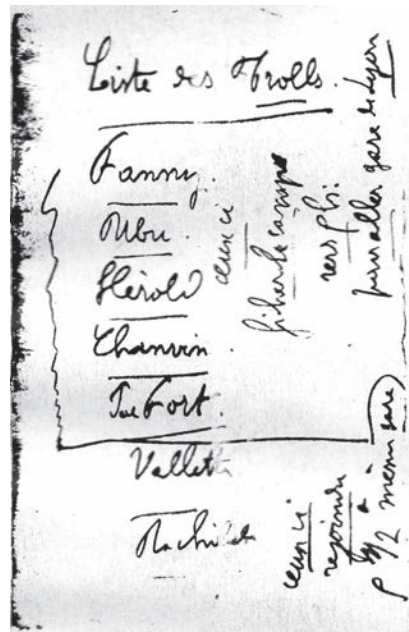 Liste des Trolls.
Fanny.
Ubu.
Hérold
Chanvin
Paul Fort.
Vallett
Rachilde
ceux ci
fichent le camp
vers 5h.
pour aller gare de Lyon
ceux ci
rejoindre
à
même gare)